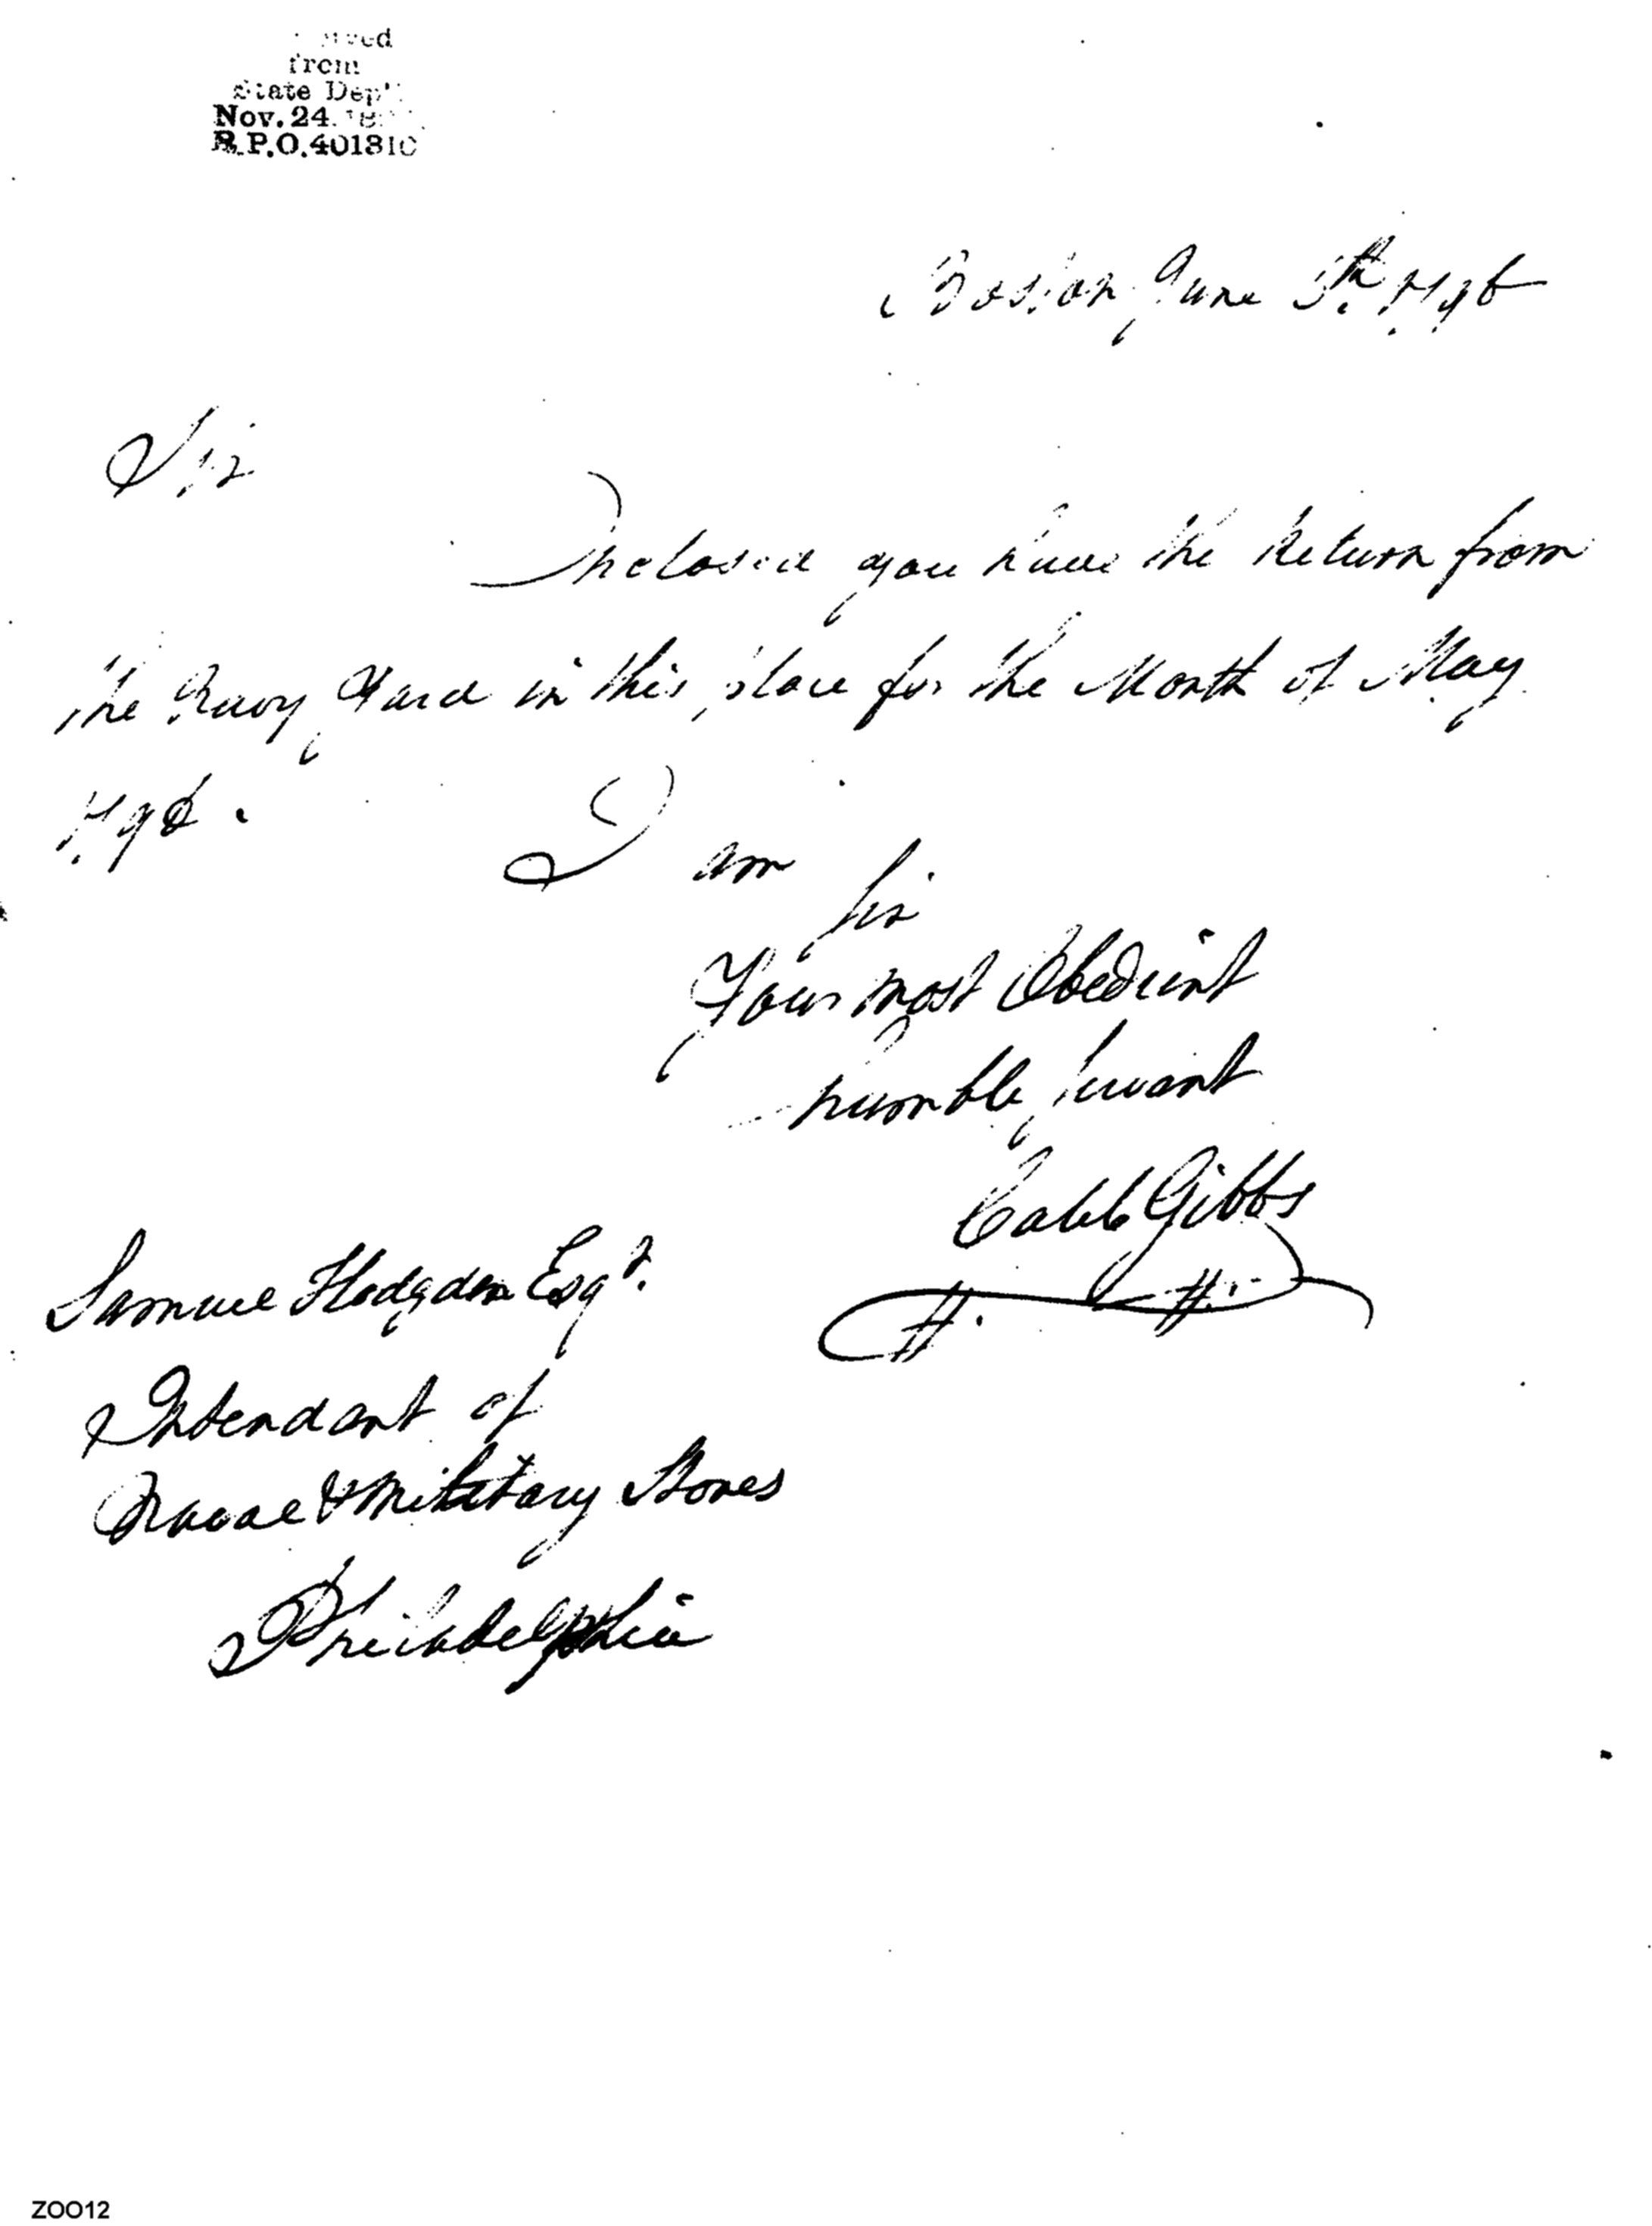 from
State Dept
Nov. 24. 18
R.P.O. 401810
Boston June 5th. 1796
Sir
Inclosed you have the Return from
the Navy Yard in this place for the Month of May
1796.
I am
Sir
Your most Obedient
humble servant
Caleb Gibbs
Samuel Hodgdon Esqr.
Intendant of
Naval & Military Stores
Philadelphia
ZOO12